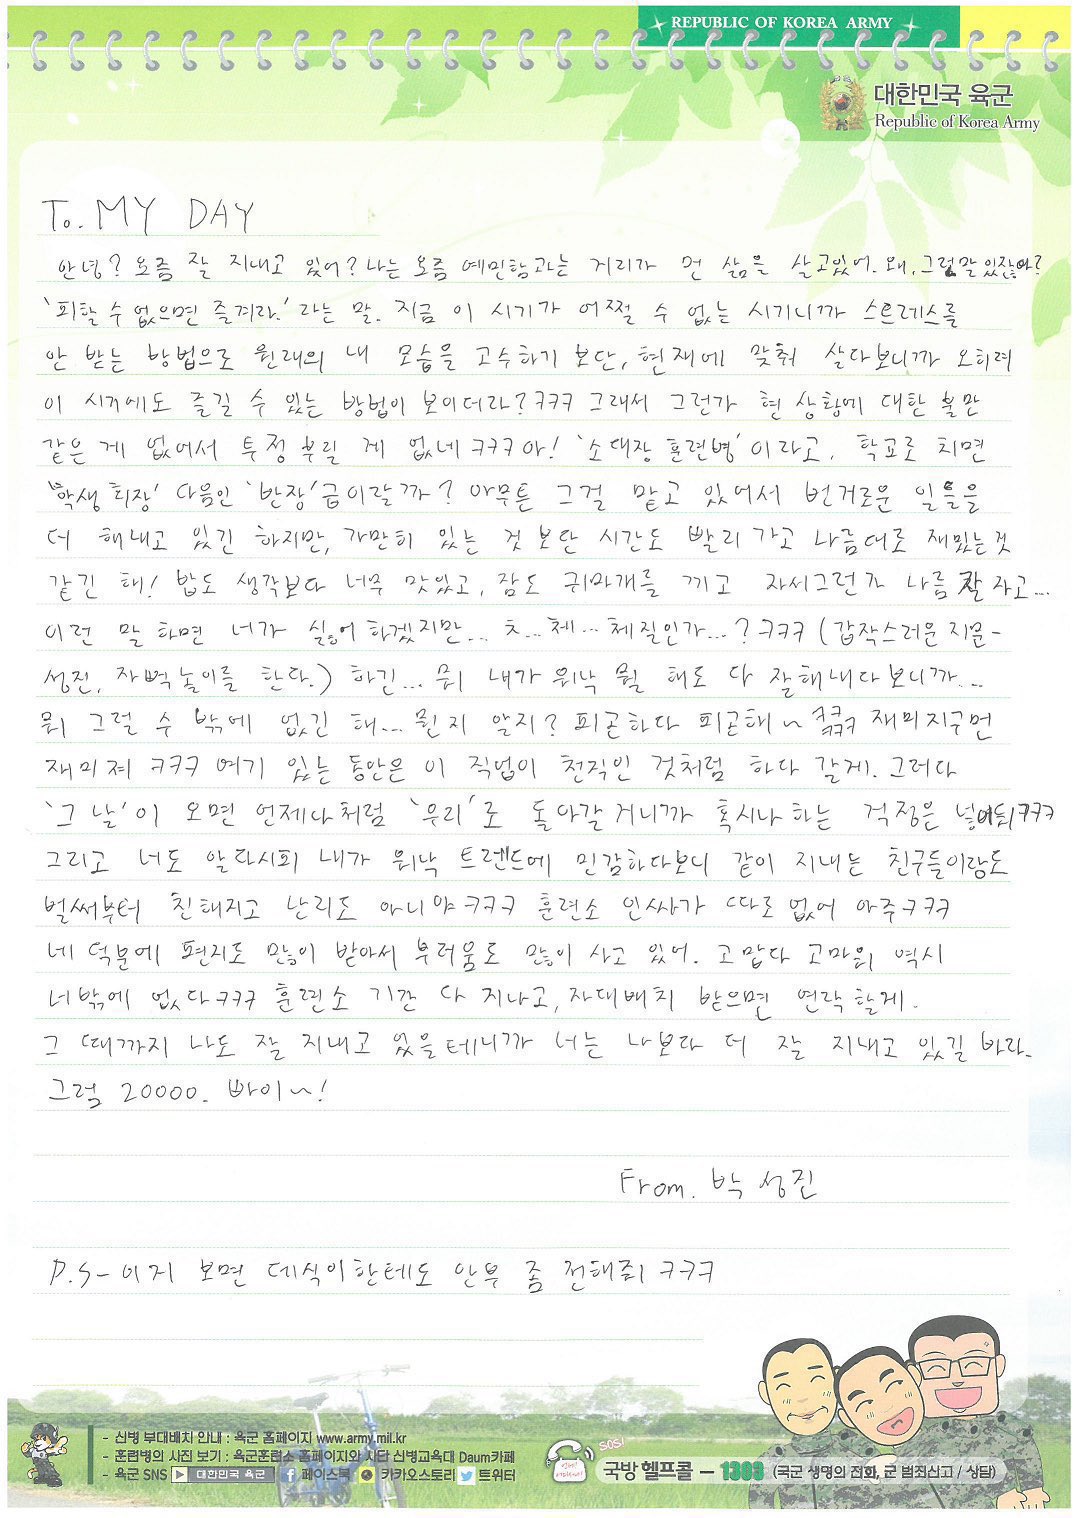 REPUBLIC OF KOREA ARMY
대한민국 육군
Republic of Korea Army
To. MY DAY
안녕? 요즘 잘 지내고 있어? 나는 요즘 예민함과는 거리가 먼 삶을 살고있어. 왜, 그런말 있잖아?
'피할 수 없으면 즐겨라.' 라는 말. 지금 이 시기가 어쩔 수 없는 시기니까 스트레스를
안 받는 방법으로 원래의 내 모습을 고수하기 보단, 현재에 맞춰 살다보니까 오히려
이 시기에도 즐길 수 있는 방법이 보이더라? ㅋㅋㅋ 그래서 그런가 현 상황에 대한 불만
같은 게 없어서 투정 부릴 게 없네 ㅋㅋㅋ 아! '소대장 훈련병' 이라고, 학교로 치면
'학생 회장' 다음인 '반장' 급이랄까? 아무튼 그걸 맡고 있어서 번거로운 일들을
더 해내고 있긴 하지만, 가만히 있는 것 보단 시간도 빨리 가고 나름대로 재밌는것
같긴 해! 밥도 생각보다 너무 맛있고, 잠도 귀마개를 끼고 자서그런가 나름 잘 자고...
이런 말 하면 네가 싫어 하겠지만... ㅊ...체...체질인가...? ㅋㅋㅋ (갑작스러운 지문-
성진, 자뻑놀이를 한다.) 하긴... 뭐 내가 워낙 뭘 해도 다 잘해내다보니까...
뭐 그럴 수 밖에 없긴 해... 뭔지 알지? 피곤하다 피곤해~ ㅋㅋㅋㅋㅋㅋ 재미지구먼
재미져 ㅋㅋㅋ 여기 있는 동안은 이 직업이 천직인 것처럼 하다 갈게. 그러다
'그 날'이 오면 언제나처럼 '우리'로 돌아갈 거니까 혹시나 하는 걱정은 넣어둬 ㅋㅋㅋ
그리고 너도 알다시피 내가 워낙 트렌드에 민감하다보니 같이 지내는 친구들이랑도
벌써부터 친해지고 난리도 아니야 ㅋㅋㅋ 훈련소 인싸가 따로 없어 아주 ㅋㅋㅋ
네 덕분에 편지도 많이 받아서 부러움도 많이 사고 있어. 고맙다 고마워 역시
너밖에 없다 ㅋㅋㅋ 훈련소 기간 다 지나고, 자대배치 받으면 연락 할게.
그 때까지 나도 잘 지내고 있을테니까 너는 나보다 더 잘 지내고 있길 바라.
그럼 20000. 빠이~!
From. 박 성진
P.S - 이거 보면 데식이한테도 안부 좀 전해줘 ㅋㅋㅋ
- 신병 부대배치 안내 : 육군 홈페이지 www.army.mil.kr
- 훈련병의 사진 보기 : 육군훈련소 홈페이지와 사단 신병교육대 Daum카페
- 육군 SNS 대한민국 육군 페이스북 카카오스토리 트위터
SOS!
국방 헬프콜 - 1303 (국군 생명의 전화, 군 범죄신고 / 상담)